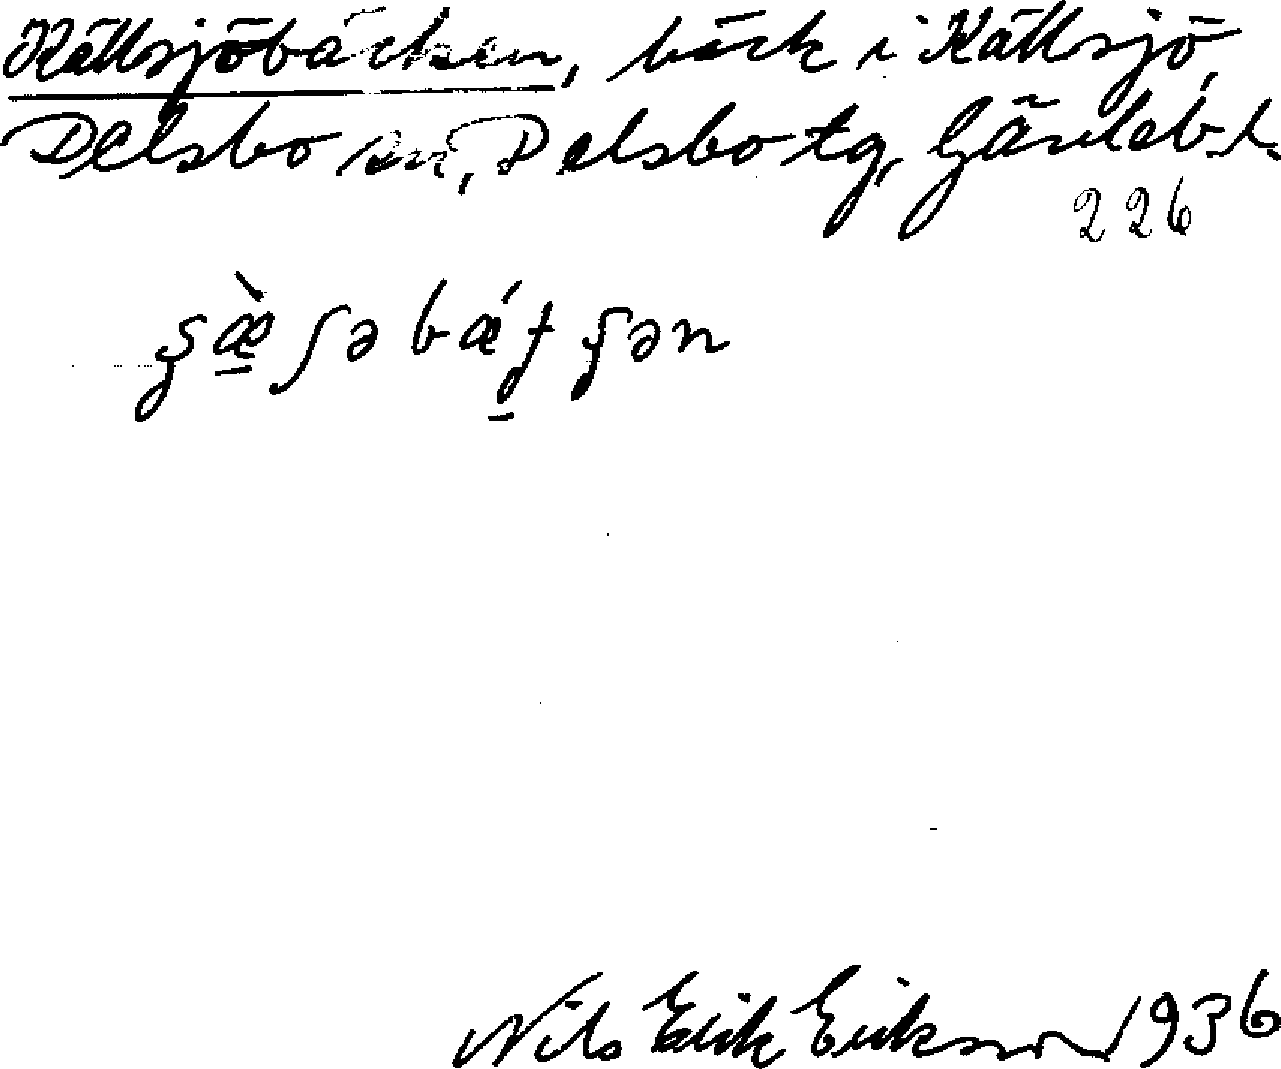 Källsjöbäcken, bäck i Källsjö,
Delsbo sn, Delsbo tg, Gävleb. l.
226
Nils Erik Erikson 1936